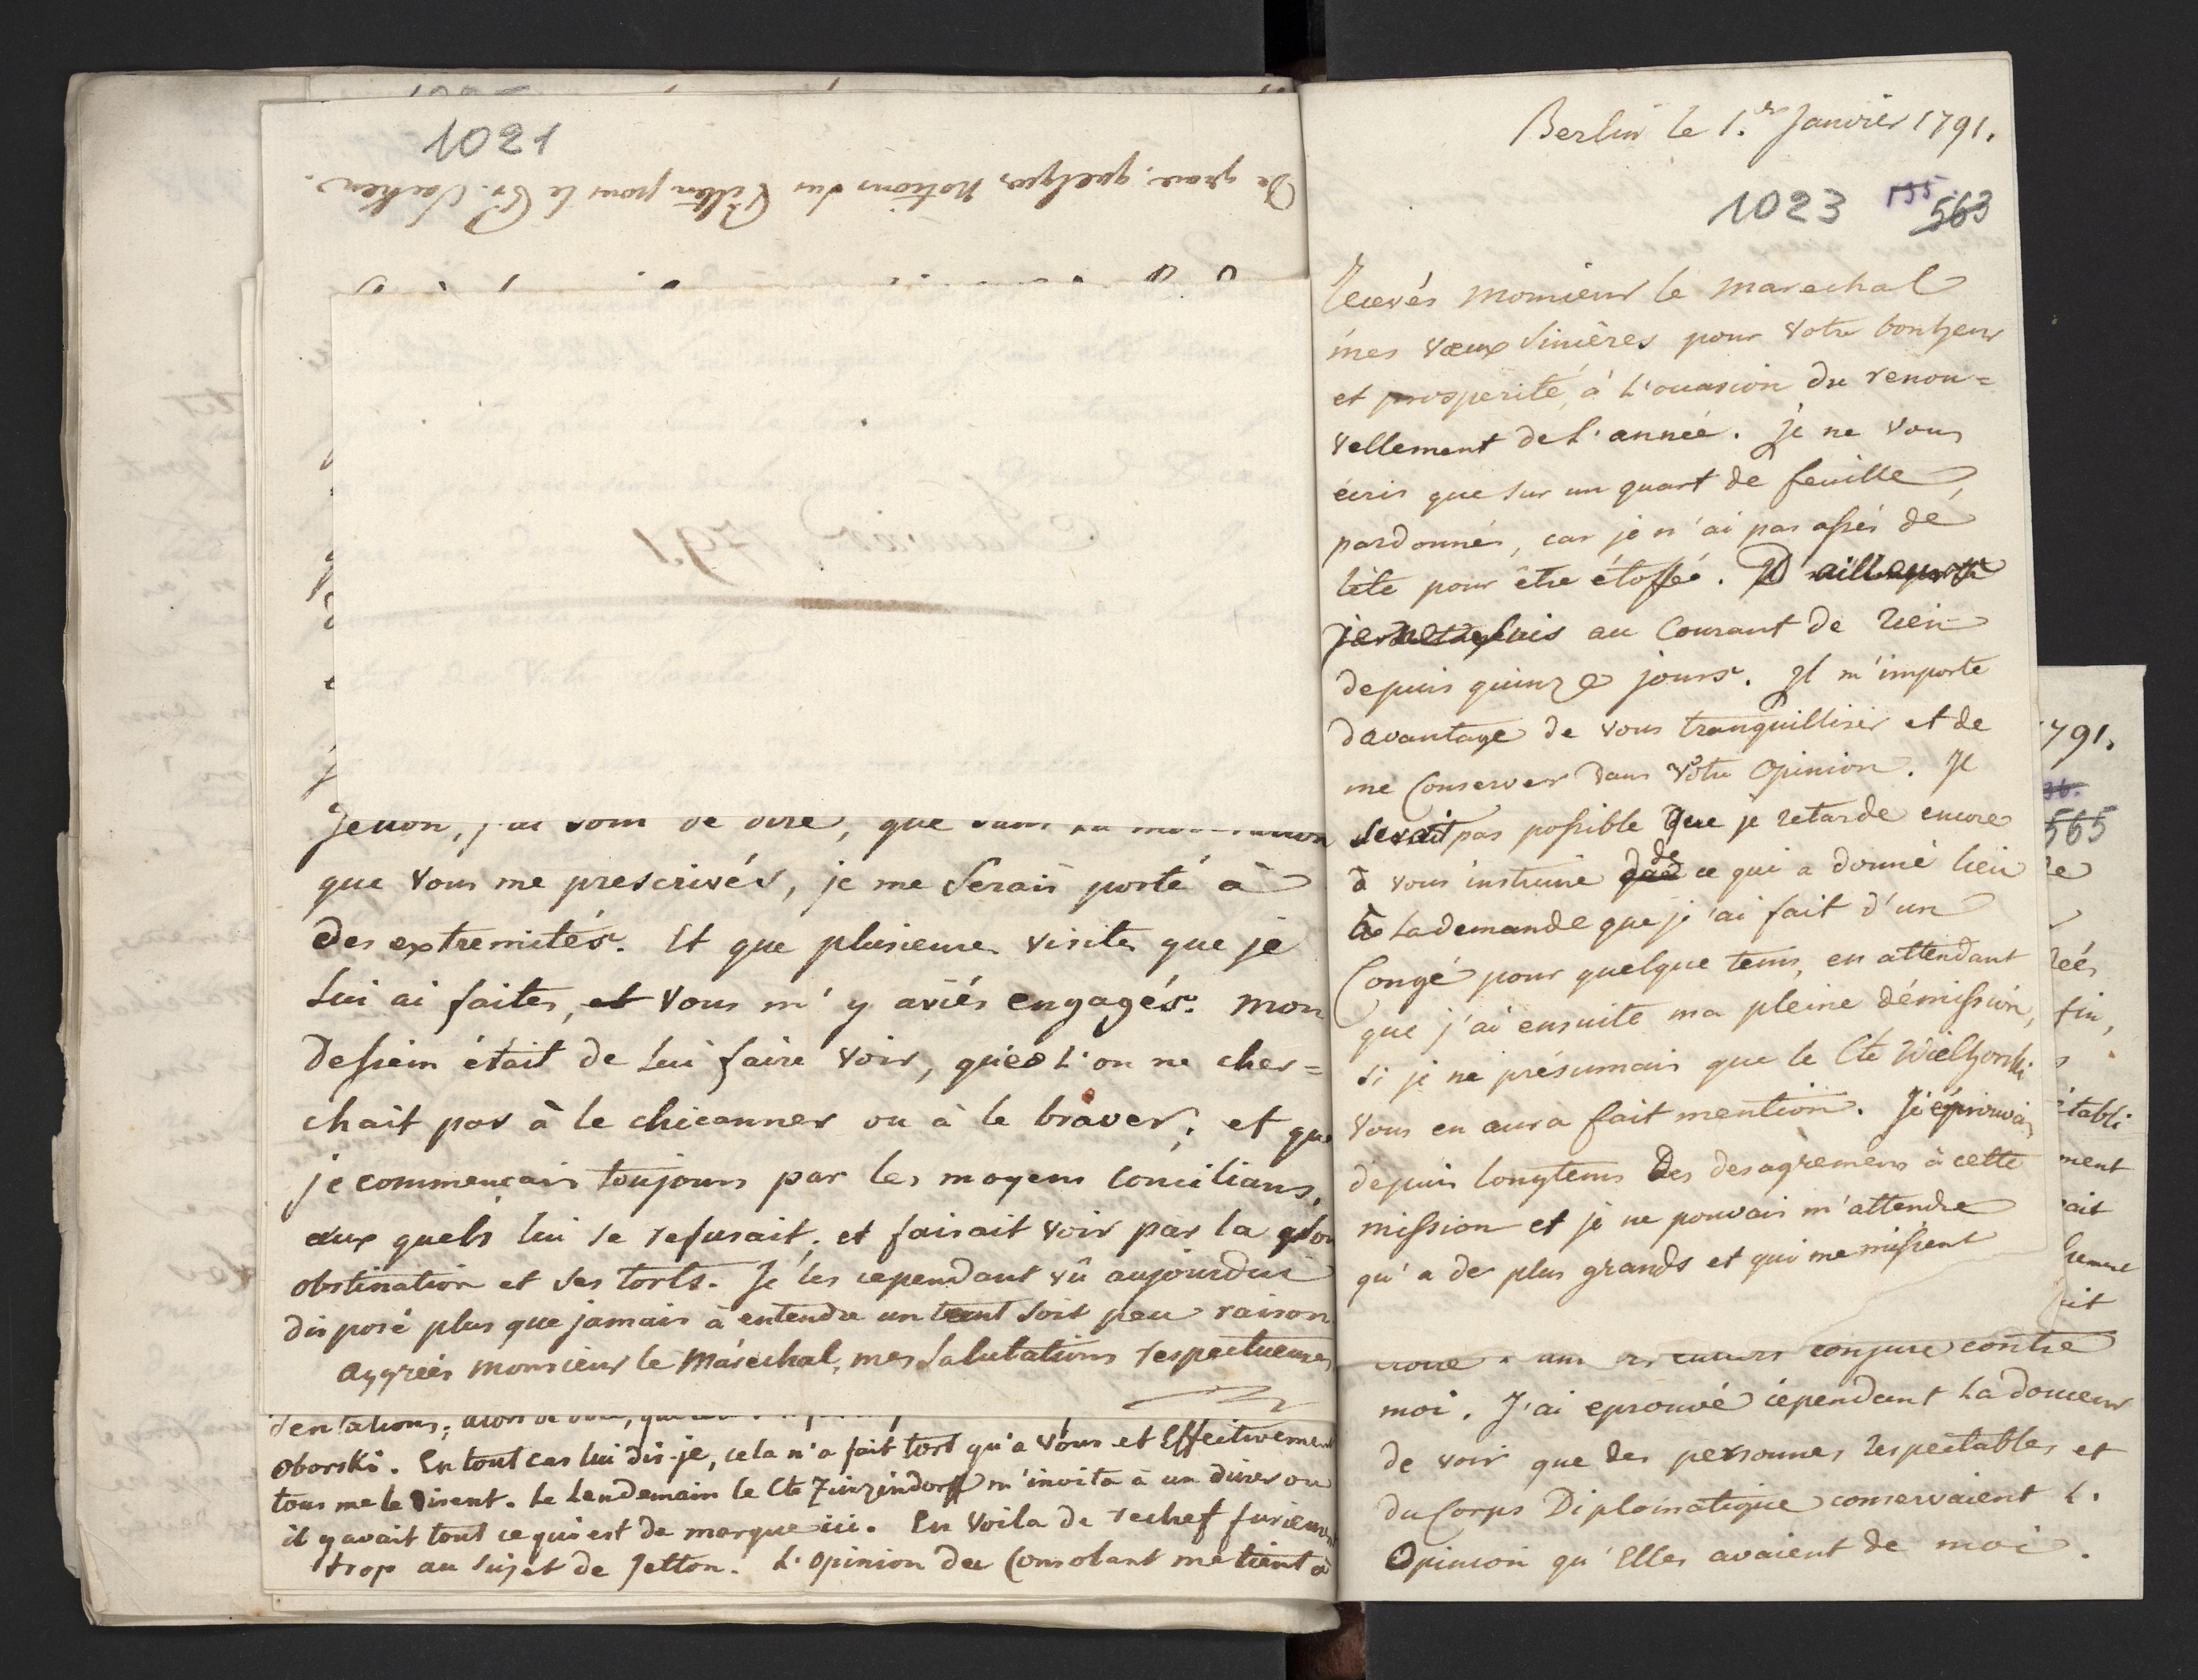 1021
De grace, quelques notions sur Pilten pour le Cr. Sacken.
Janvier 1791
que vous me prescrivés, je me serais porté à
des extremités. Et que plusieures visites que je
lui ai faites, vous m'y aviés engagés. Mon
dessein était de lui faire voir, que L'on ne cher=
chait pas à le chicanner ou à le braver; et que
je commençais toujours par les moyens concilians,
aux quels lui se refusait; et faisait voir par la son
obstination et ses torts. Je les cependant vû aujourdui
disposé plus que jamais à entendre un tant soit peu raison
Aggreés Monsieur le Maréchal, mes salutations respectueuses
sentations;
Oborski. En tout cas lui dis-je, cela n'a fait tort qu'a vous et Effectivement
tous me le disent. Le Lendemain le Cte Zinzindorff m'invita à un diner ou
il y avait tout ce qui est de marque ici. En voila de rechef furieusement
trop au sujet de Jetton. L'opinion du Consolant me tient à
Berlin le 1.er Janvier 1791.
1023 563
Recevés Monsieur le Marechal
mes vœux sinières pour votre bonheur
et prosperité, à L'occasion du renou=
vellement de L'année. Je ne vous
écris que sur un quart de feuille,
pardonnés, car je n'ai pas assés de
tête pour être étoffé. D'ailleurs
je ne suis au Courant de rien
depuis quinze jours. Il m'importe
davantage de vous tranquilliser et de
me Conserver dans Votre Opinion. Il
serait pas possible que je retarde encore
à vous instruire de ce qui a donné lieu
à La demande que j'ai fait d'un
Congé pour quelque tems, en attendant
que j'ai ensuite ma pleine démission,
si je ne présumais que le Cte Wielhorski
vous en aura fait mention. Je éprouvais
depuis longtems des desagremens à cette
mission et je ne pouvais m'attendre
qu'a de plus grands et qui me missent
conjuré contre
moi. J'ai eprouvé cependant La douceur
de voir que des personnes respectables et
du Corps Diplomatique conservaient L.
Opinion qu'Elles avaient de moi.
791.
565
fin,
établi
ment
ait